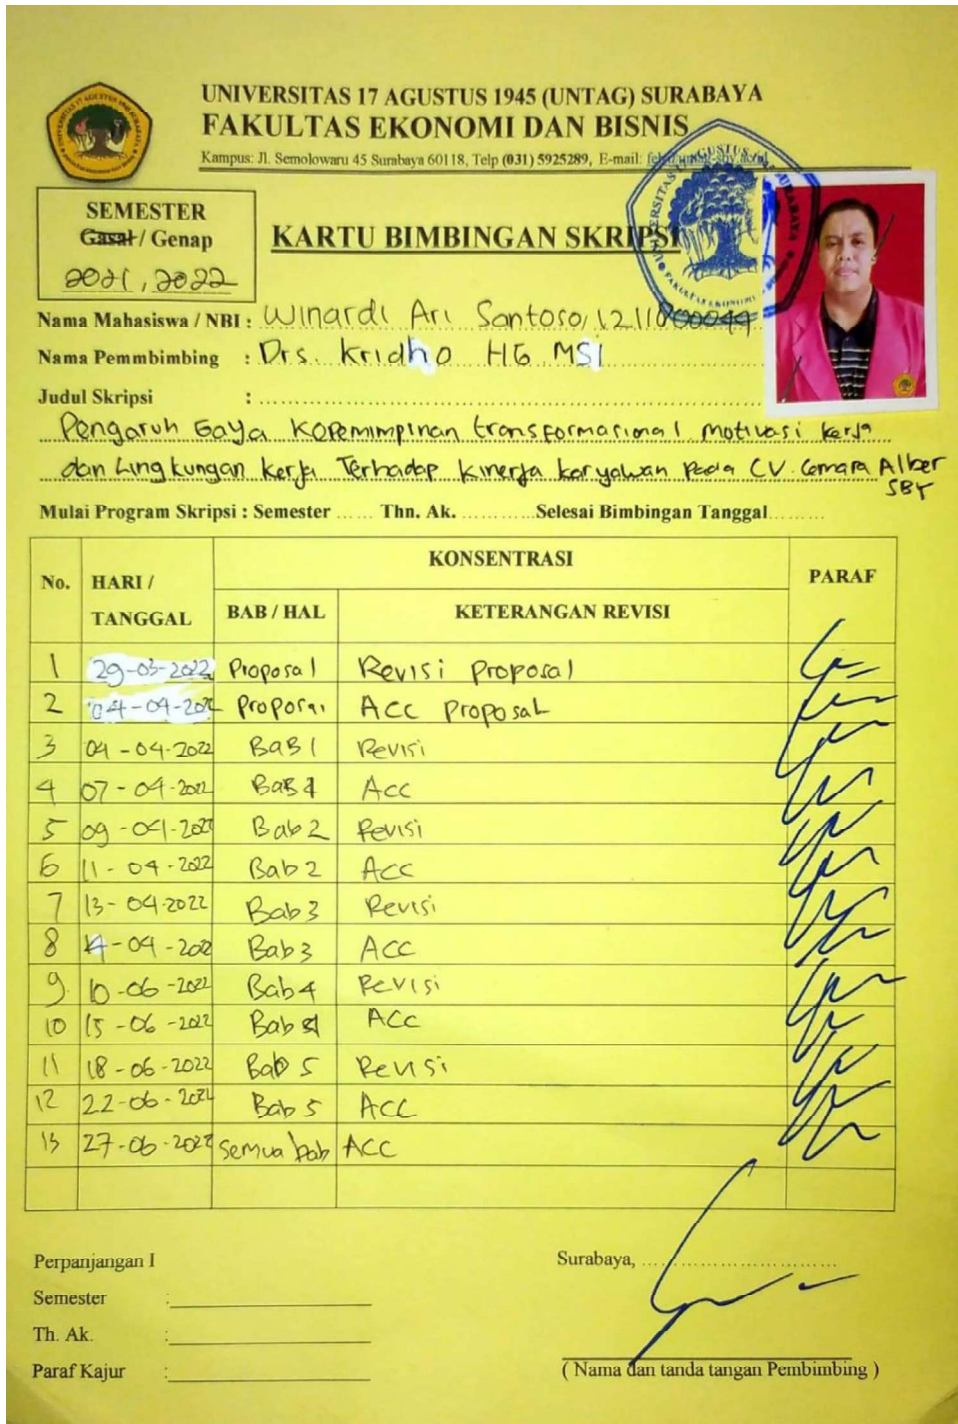 UNIVERSITAS 17 AGUSTUS 1945 (UNTAG) SURABAYA
FAKULTAS EKONOMI DAN BISNIS
Kampus: Jl. Semolowaru 45 Surabaya 60118, Telp (031) 5925289, E-mail:
SEMESTER
Gasal / Genap
2021, 2022
KARTU BIMBINGAN SKRIPSI
Nama Mahasiswa / NBI : Winardi Ari Santoso,
Nama Pemmbimbing : Drs. Kridho HG MSI
Judul Skripsi :
Pengaruh Gaya Kepemimpinan transformasional motivasi kerja
dan Lingkungan kerja Terhadap kinerja karyawan Pada CV. Cemara Alber
SBY
Mulai Program Skripsi : Semester ...... Thn. Ak. ............ Selesai Bimbingan Tanggal.........
KONSENTRASI
No. HARI / TANGGAL BAB / HAL KETERANGAN REVISI PARAF
1 29-03-2022 Proposal Revisi proposal
2 04-04-2022 Proposal Acc proposal
3 04-04-2022 BaB 1 Revisi
4 07-04-2022 BaB 1 Acc
5 09-04-2022 Bab 2 Revisi
6 11-04-2022 Bab 2 Acc
7 13-04-2022 Bab 3 Revisi
8 14-04-2022 Bab 3 ACC
9 10-06-2022 Bab 4 Revisi
10 15-06-2022 Bab 4 Acc
11 18-06-2022 Bab 5 Revisi
12 22-06-2022 Bab 5 ACC
13 27-06-2022 Semua bab ACC
Perpanjangan I
Surabaya, ..............................
Semester :
Th. Ak. :
Paraf Kajur :
( Nama dan tanda tangan Pembimbing )